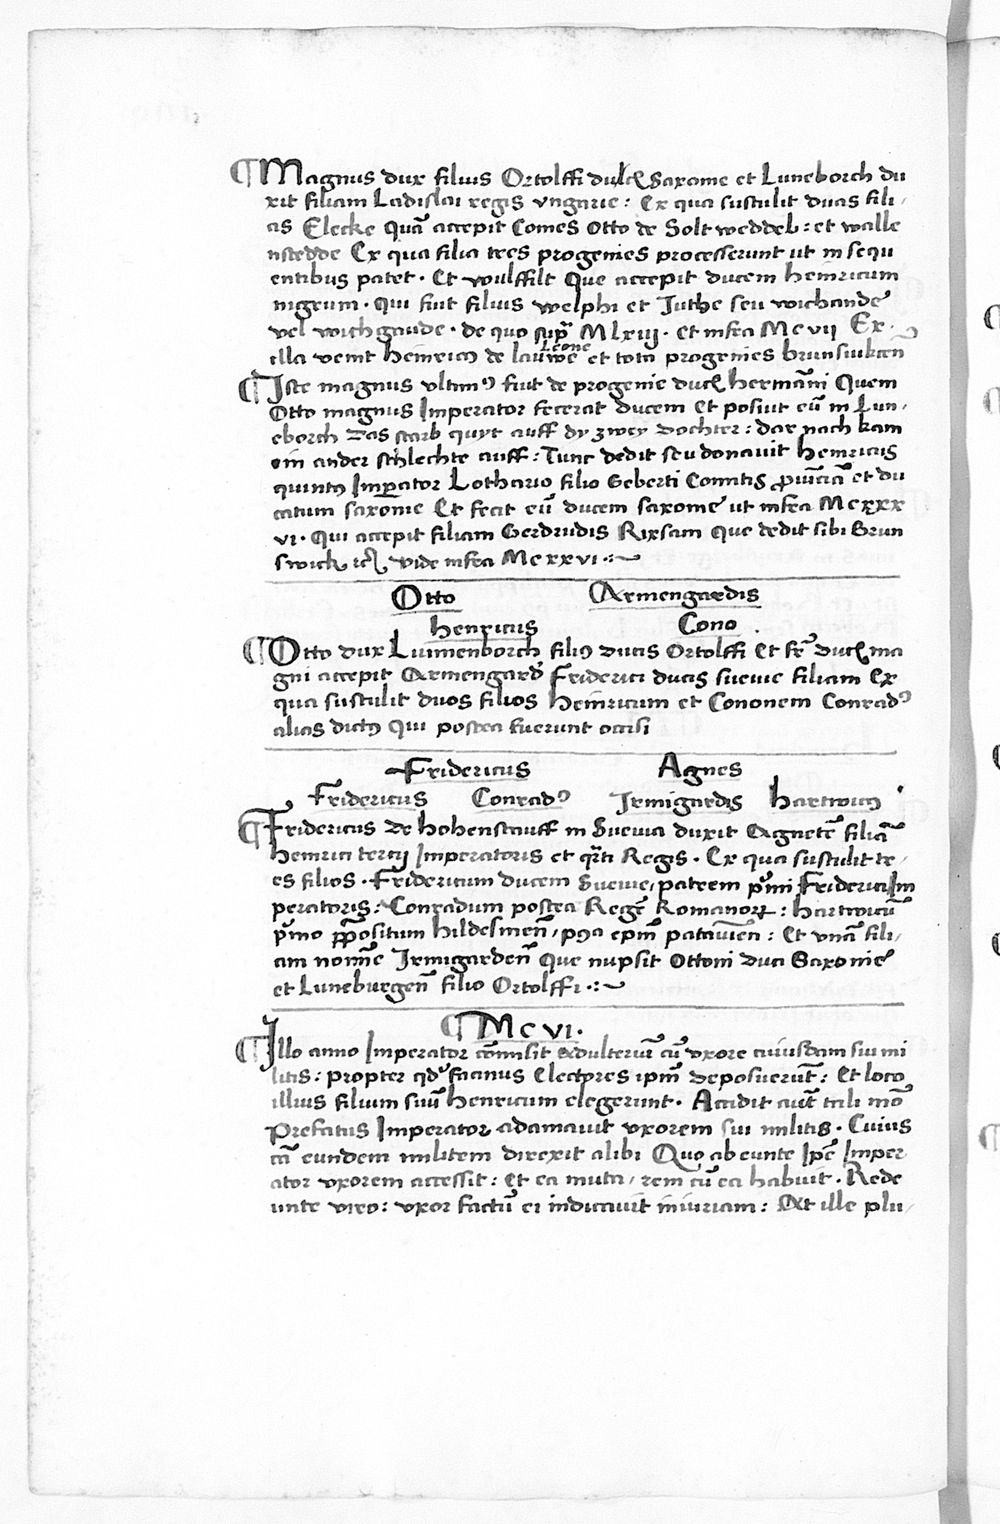 ¶ Magnus dux filius Ortolffi ducꝭ Saxonie et Luneborch du
xit filiam Ladislai regis vngarie: Ex qua sustulit duas fili,
as Elecke quā accepit Comes Otto de Solt weddel: et walle
nstedde Ex qua filia tres progenies processerunt ut in sequ
entibus patet. Et wulffilt Que accepit ducem heinricum
nigrum. qui fuit filius welphi et Juthe seu wichande
vel wichgaude. de quo supͣ Mlxiij. et infra Mcvij Ex,
illa venit heinricꝰ de lauwe͂ Leone et tota progenies brunsuikcen
¶ Iste magnus vltimꝰ fuit de progenie ducꝭ hermāni Quem
Otto magnus Imperator fecerat ducem Et posuit eū in Lun,
eborch Das starb quyt auff dy zwey dochter: dar nach kam
ein ander schlechte auff: Tunc dedit seu donauit heinricus
quintꝰ Imperator Lothario filio Geberti Comitis et du
catum saxonie Et fecit eū ducem saxonie ut infra Mcxxx
vi. Qui accepit filiam Gerdrudis Rixsam que dedit sibi Brun
swick ꝛcͣ vide infra Mcxxvi.:~
Otto Armengardis
henricus Cono.
¶ Otto dux Luinenborch filiꝰ ducis Ortolffi Et fr̄ ducꝭ ma
gni accepit Armengard̄ friderici ducis sueuie filiam Ex
qua sustulit duos filios heinricum et Cononem Conradꝰ
alias dictꝰ qui postea fuerunt occisi
Fridericus Agnes
Fridericus Conradꝰ Irmigardis hartwicꝰ
¶ Fridericus de hohenstauff in Sueuia duxit Agnetē filiā
heinrici tercij Imperatoris et qͣrti Regis. Ex qua sustulit tr,
es filios. Fridericum ducem Sueuie, patrem pͥmi Friderici Im
peratoris: Conradum postea Regē Romanorꝝ: hartwicū
pͥmo ꝓpositum hildesmen̄, p9a epm̄ patauien̄: Et vnā fili,
am nomīe Irmigarden̄ que nupsit Ottoni duci Saxonie
et Luneburgen̄ filio Ortolffi.:~
¶ Mcvi.
¶ Illo anno Imperator cōmisit adulteriū cū vxore cuiusdam sui mi
litis: propter qd' facinus Electores ipm̄ deposuerūt: Et loco
illius filium suū henricum elegerunt. Accidit aūt tali mō
Prefatus Imperator adamauit vxorem sui militis. Cuius
cā eundem militem direxit alibi Quo abeunte Ipē Imper
ator vxorem accessit: et ea muta, rem cū ea habuit. Rede
unte viro: vxor factū ei indicauit iniuriam: At ille plu,